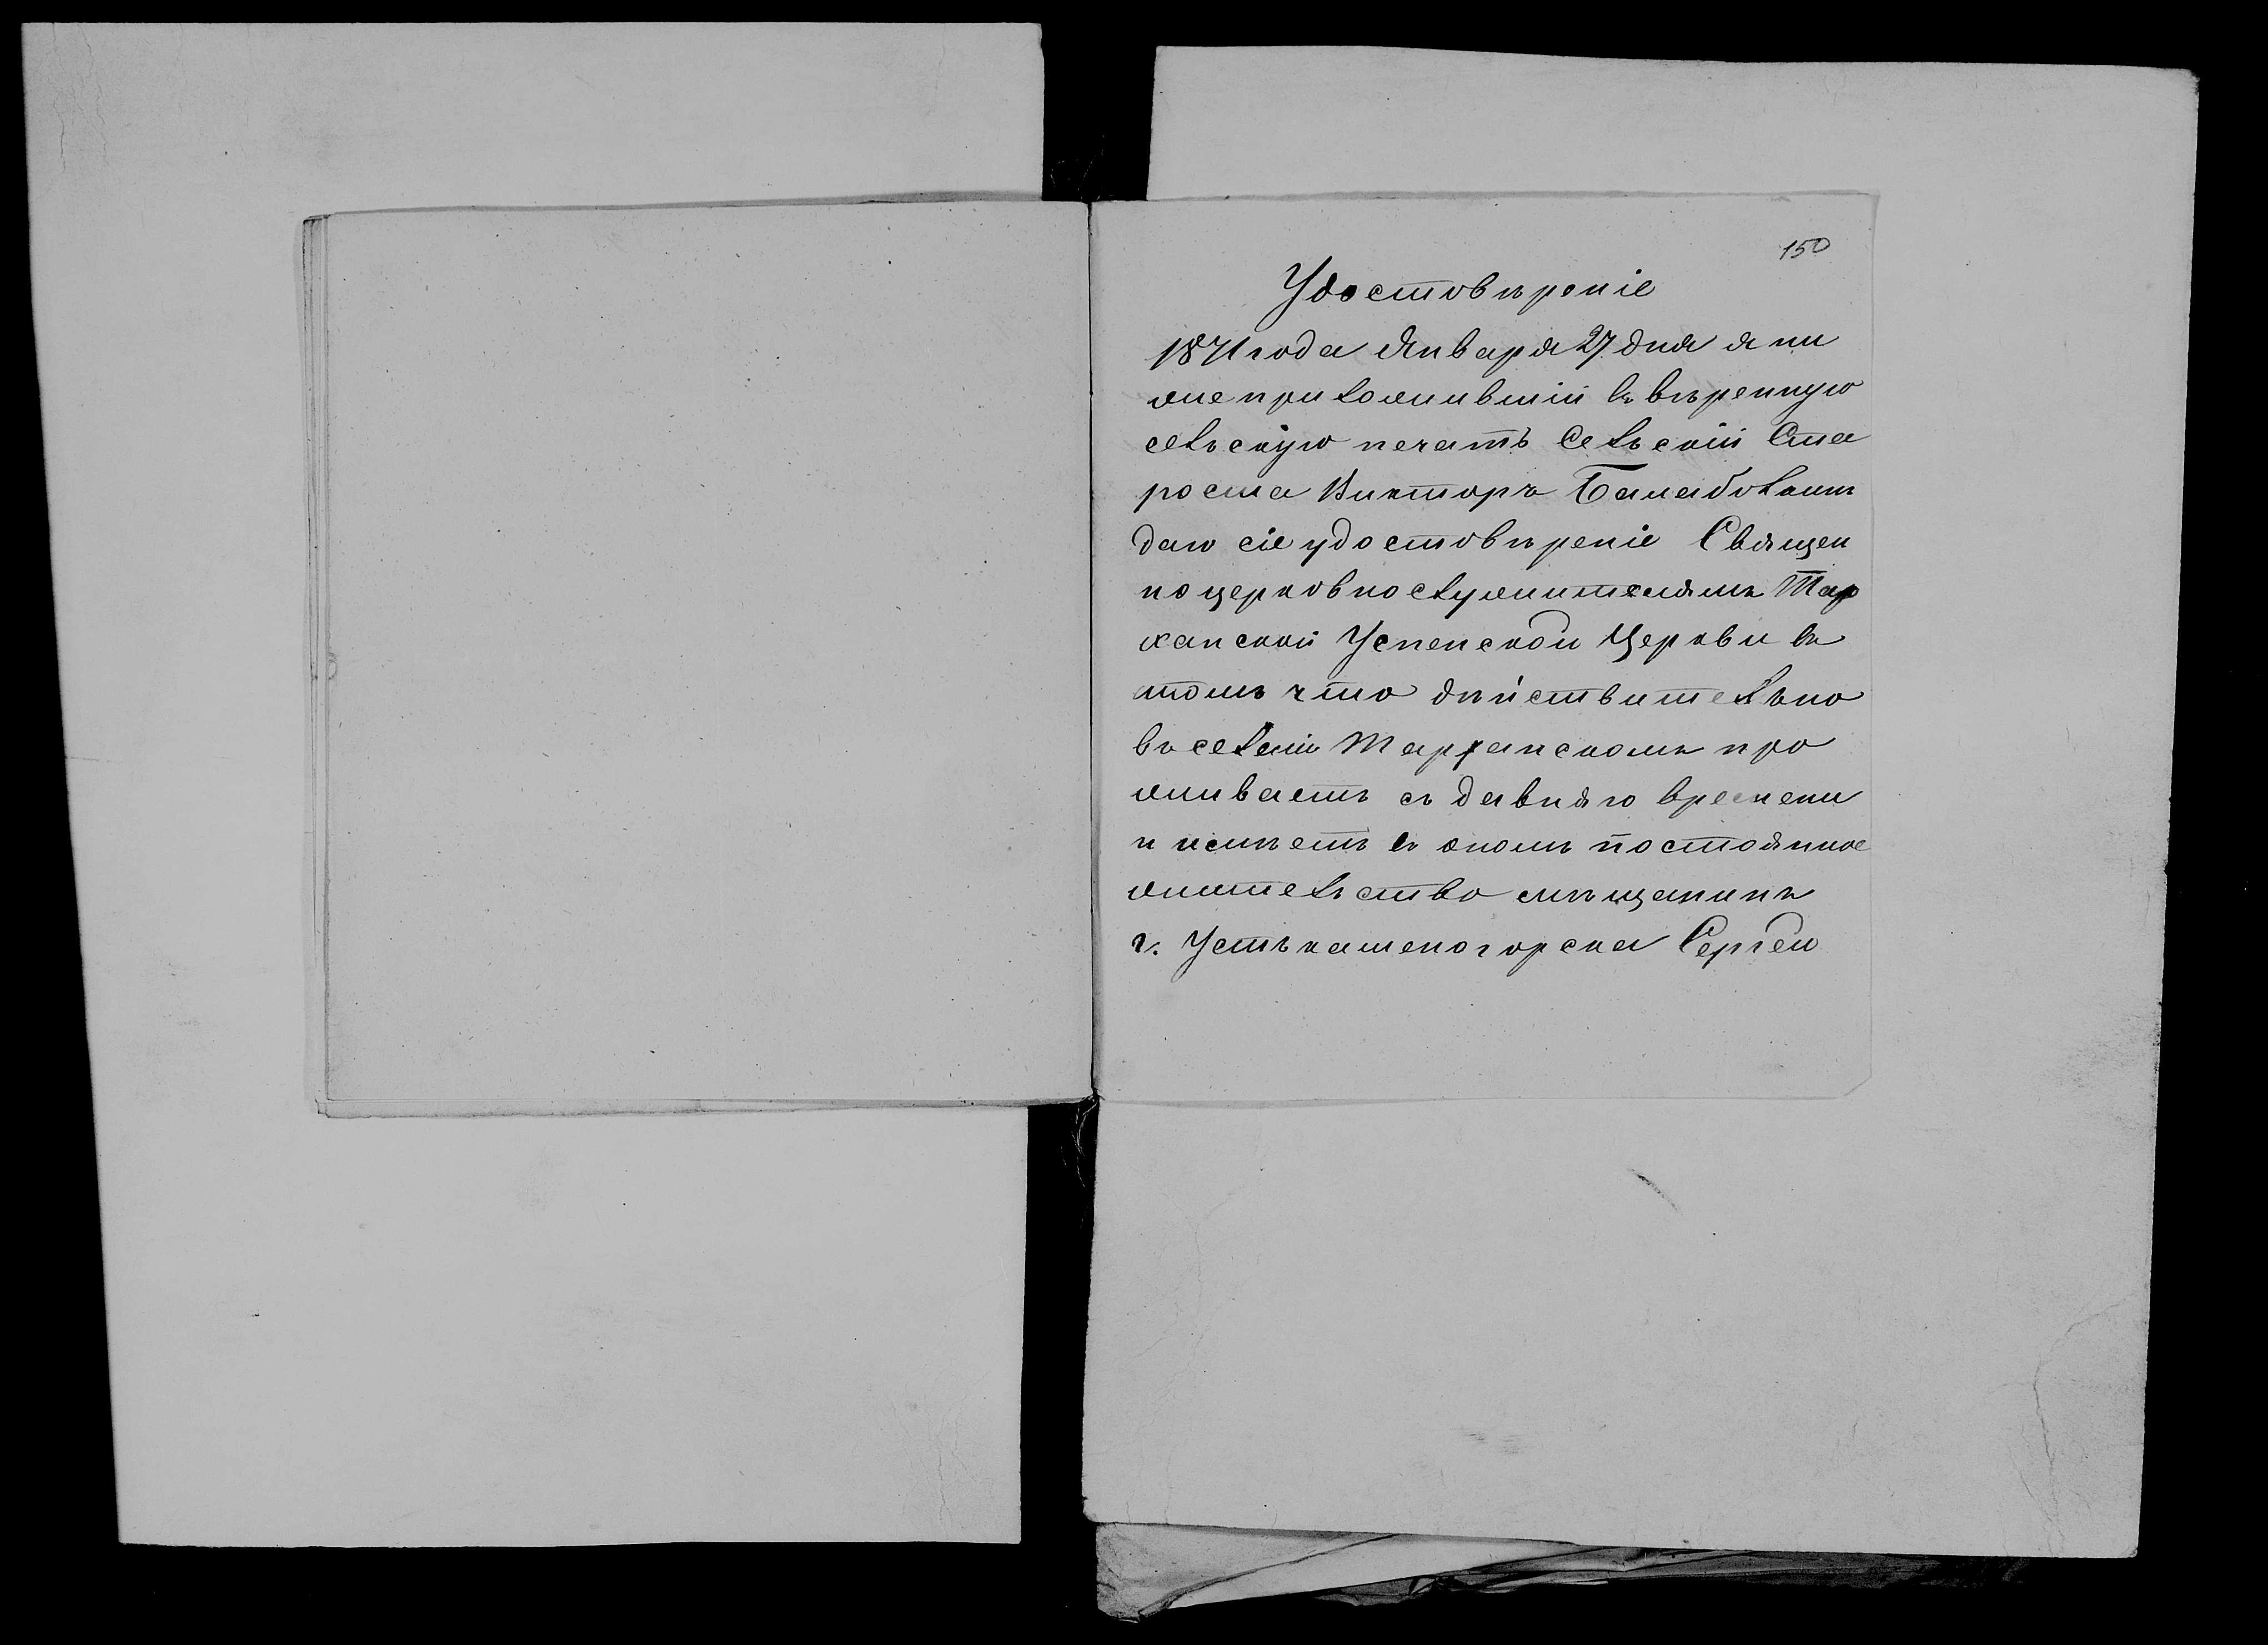 150
Удостовѣреніе
1871 года Января 27 дня я ни
жеприложившій ввѣренную
сельскую печать Сельскій Ста
роста Викторъ
даю сіе удостовѣреніе Священ
ноцерковнослужителямъ Тар
ханской Успенской Церкви въ
томъ что дѣйствительно
въ селеніи Тарханскомъ про
живаетъ съ давняго времени
и имѣетъ въ ономъ постоянное
жительство мѣщанинъ
г. Устькаменогорска Сергей